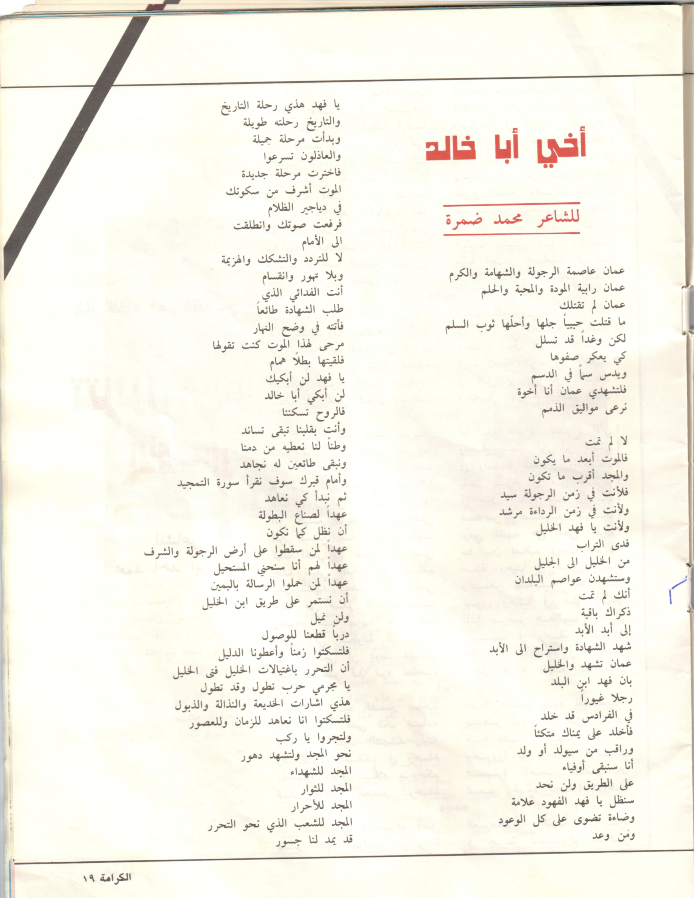 أخي أبا خالد
للشاعر محمد ضمرة
عمان عاصمة الرجولة والشهامة والكرم
عمان رابية المودة والمحبة والحلم
عمان لم تقتلك
ما قتلت حبيباً جلها وأحلّها ثوب السلم
لكن وغداً قد تسلل
كي يعكر صفوها
ويدس سماً في الدسم
فلتشهدي عمان أنا أخوة
نرعى مواثيق الذمم
لا لم تمت
فالموت أبعد ما يكون
والمجد أقرب ما تكون
فلأنت في زمن الرجولة سيد
ولأنت في زمن الرداءة مرشد
ولأنت يا فهد الخليل
فدى التراب
من الخليل الى الجليل
وستشهدن عواصم البلدان
أنك لم تمت
ذكراك باقية
إلى أبد الأبد
شهد الشهادة واستراح الى الأبد
عمان تشهد والخليل
بان فهد ابن البلد
رجلا غيوراً
في الفرادس قد خلد
فأخلد على يمناك متكئاً
وراقب من سيولد أو ولد
أنا سنبقى أوفياء
على الطريق ولن نحد
سنظل يا فهد الفهود علامة
وضاءة تضوى على كل الوعود
ومَن وعد
يا فهد هذي رحلة التاريخ
والتاريخ رحلته طويلة
وبدأت مرحلة جميلة
والعاذلون تسرعوا
فاخترت مرحلة جديدة
الموت أشرف من سكوتك
في دياجير الظلام
فرفعت صوتك وانطلقت
الى الأمام
لا للتردد والتشكك والهزيمة
وبلا تهور وانقسام
أنت الفدائي الذي
طلب الشهادة طائعاً
فأتته في وضح النهار
مرحى لهذا الموت كنت تقولها
فلقيتها بطلاً همام
يا فهد لن أبكيك
لن أبكي أبا خالد
فالروح تسكننا
وأنت بقلبنا تبقى تساند
وطناً لنا نعطيه من دمنا
ونبقى طائعين له نجاهد
وأمام قبرك سوف نقرأ سورة التمجيد
ثم نبدأ كي نعاهد
عهداً لصناع البطولة
أن نظل كما نكون
عهداً لمن سقطوا على أرض الرجولة والشرف
عهداً لهم أنا سنحني المستحيل
عهداً لمن حملوا الرسالة باليمين
أن نستمر على طريق ابن الخليل
ولن نميل
درباً قطعنا للوصول
فلتسكتوا زمناً وأعطونا الدليل
أن التحرر باغتيالات الخليل فتى الخليل
يا مجرمي حرب تطول وقد تطول
هذي اشارات الخديعة والنذالة والذبول
فلتسكتوا انا نعاهد للزمان وللعصور
ولتجروا يا ركب
نحو المجد ولتشهد دهور
المجد للشهداء
المجد للثوار
المجد للأحرار
المجد للشعب الذي نحو التحرر
قد يمد لنا جسور
الكرامة ١٩